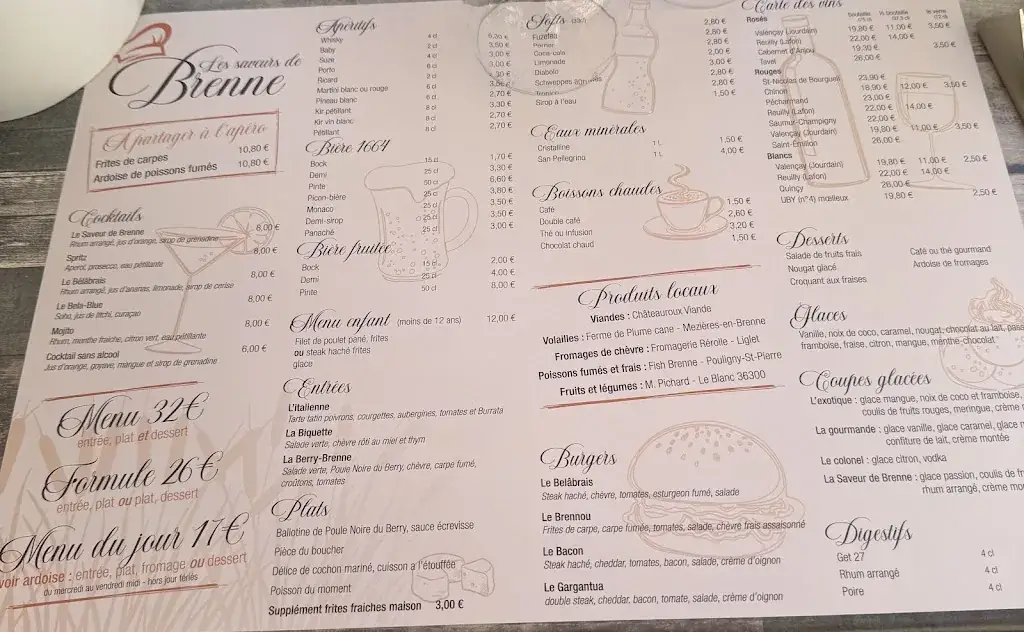 Les saveurs de
Brenne
A partager à l'apéro
Frites de carpes 10,80 €
Ardoise de poissons fumés 10,80 €
Cocktails
Le Saveur de Brenne 8,00 €
Rhum arrangé, jus d'orange, sirop de grenadine
Spritz 8,00 €
Aperol, prosecco, eau pétillante
Le Bélâbrais 8,00 €
Rhum arrangé, jus d'ananas, limonade, sirop de cerise
Le Bela-Blue 8,00 €
Soho, jus de litchi, curaçao
Mojito 8,00 €
Rhum, menthe fraiche, citron vert, eau pétillante
Cocktail sans alcool 6,00 €
Jus d'orange, goyave, mangue et sirop de grenadine
Menu 32€
entrée, plat et dessert
Formule 26€
entrée, plat ou plat, dessert
Menu du jour 17€
voir ardoise : entrée, plat, fromage ou dessert
du mercredi au vendredi midi - hors jour fériés
Apéritifs
Whisky 4 cl
Baby 2 cl 3,50 €
Suze 3,00 €
Porto 3,00 €
Ricard 2 cl
Martini blanc ou rouge 6 cl
Pineau blanc 2,70 €
Kir pétillant 8 cl 3,30 €
Kir vin blanc 8 cl 2,70 €
Pétillant 8 cl 2,70 €
Bière 1664
Bock 15 cl 1,70 €
Demi 25 cl 3,30 €
Pinte 50 cl 6,60 €
Picon-bière 25 cl 3,80 €
Monaco 25 cl 3,50 €
Demi-sirop 25 cl 3,50 €
Panaché 25 cl 3,00 €
Bière fruitée
Bock 15 cl 2,00 €
Demi 25 cl 4,00 €
Pinte 50 cl 8,00 €
Menu enfant (moins de 12 ans) 12,00 €
Filet de poulet pané, frites
ou steak haché frites
glace
Entrées
L'italienne
Tarte tatin poivrons, courgettes, aubergines, tomates et Burrata
La Biquette
Salade verte, chèvre rôti au miel et thym
La Berry-Brenne
Salade verte, Poule Noire du Berry, chèvre, carpe fumé,
croûtons, tomates
Plats
Balotine de Poule Noire du Berry, sauce écrevisse
Pièce du boucher
Délice de cochon mariné, cuisson à l'étouffée
Poisson du moment
Supplément frites fraiches maison 3,00 €
Softs
Fuzetea 2,80 €
Perrier 2,80 €
Coca-cola 2,80 €
Limonade 2,00 €
Diabolo 2,80 €
Schweppes agrumes 2,80 €
Sirop à l'eau 1,50 €
Eaux minérales
Cristalline 1 L 1,50 €
San Pellegrino 1 L 4,00 €
Boissons chaudes
Café 1,50 €
Double café 2,60 €
Thé ou infusion 3,20 €
Chocolat chaud 1,50 €
Produits locaux
Viandes : Châteauroux Viande
Volailles : Ferme de Plume cane - Mezières-en-Brenne
Fromages de chèvre : Fromagerie Rérolle - Liglet
Poissons fumés et frais : Fish Brenne - Pouligny-St-Pierre
Fruits et légumes : M. Pichard - Le Blanc 36300
Burgers
Le Belâbrais
Steak haché, chèvre, tomates, esturgeon fumé, salade
Le Brennou
Frites de carpe, carpe fumée, tomates, salade, chèvre frais assaisonné
Le Bacon
Steak haché, cheddar, tomates, bacon, salade, crème d'oignon
Le Gargantua
double steak, cheddar, bacon, tomate, salade, crème d'oignon
Carte des vins
bouteille ½ bouteille le verre
Rosés
Valençay (Jourdain) 19,80 € 11,00 € 3,50 €
Reuilly (Lafon) 22,00 € 14,00 €
Cabernet d'Anjou 19,30 € 3,50 €
Tavel 26,00 €
Rouges
St-Nicolas de Bourgueil 23,90 €
Chinon 18,90 € 12,00 € 3,50 €
Pécharmand 23,00 €
Reuilly (Lafon) 22,00 € 14,00 €
Saumur-Champigny 22,00 €
Valençay (Jourdain) 19,80 € 11,00 € 3,50 €
Saint-Émilion 26,00 €
Blancs
Valençay (Jourdain) 19,80 € 11,00 € 2,50 €
Reuilly (Lafon) 22,00 € 14,00 €
Quinçy 26,00 €
UBY (n°4) moelleux 19,80 € 2,50 €
Desserts
Salade de fruits frais
Nougat glacé
Croquant aux fraises
Café ou thé gourmand
Ardoise de fromages
Glaces
Vanille, noix de coco, caramel, nougat, chocolat au lait,
framboise, fraise, citron, mangue, menthe-chocolat
Coupes glacées
L'exotique : glace mangue, noix de coco et framboise,
coulis de fruits rouges, meringue, crème
La gourmande : glace vanille, glace caramel, glace
confiture de lait, crème montée
Le colonel : glace citron, vodka
La Saveur de Brenne : glace passion, coulis de
rhum arrangé, crème
Digestifs
Get 27 4 cl
Rhum arrangé 4 cl
Poire 4 cl